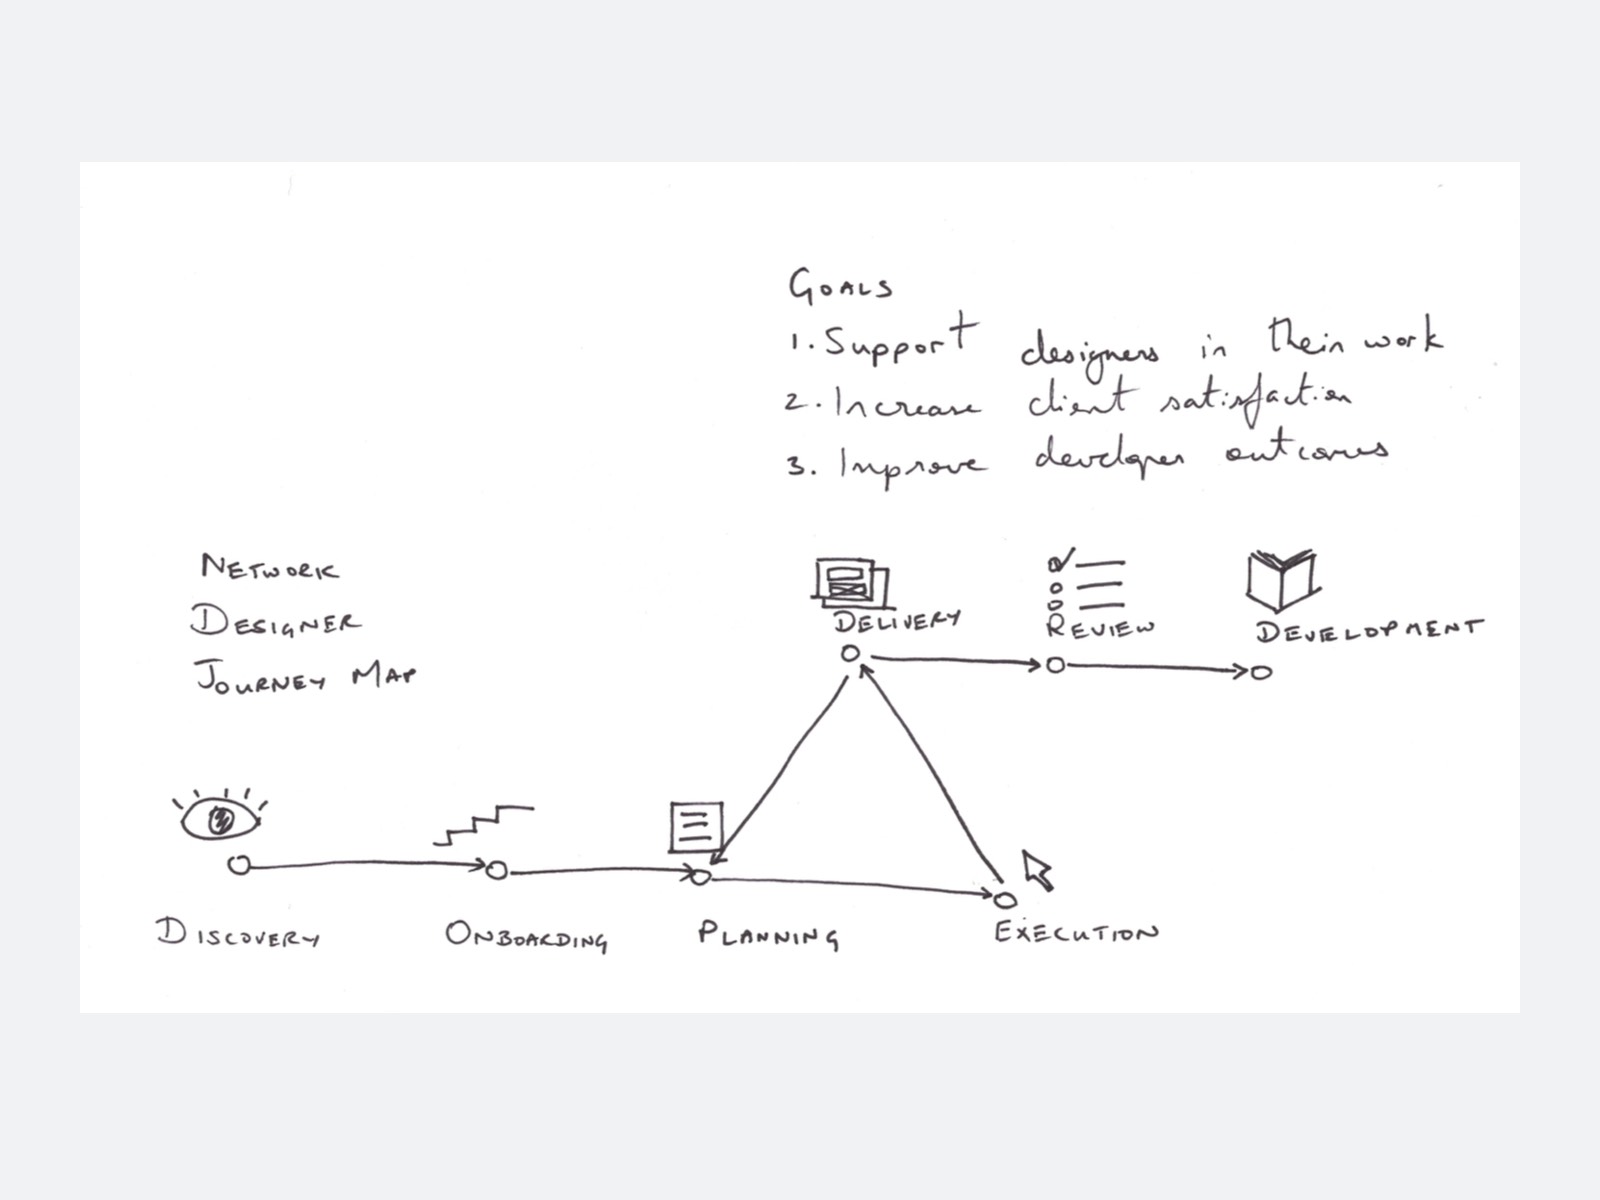 GOALS
1. Support designers in their work
2. Increase client satisfaction
3. Improve developer outcomes
NETWORK
DESIGNER
JOURNEY MAP
DELIVERY
REVIEW
DEVELOPMENT
DISCOVERY
ONBOARDING
PLANNING
EXECUTION